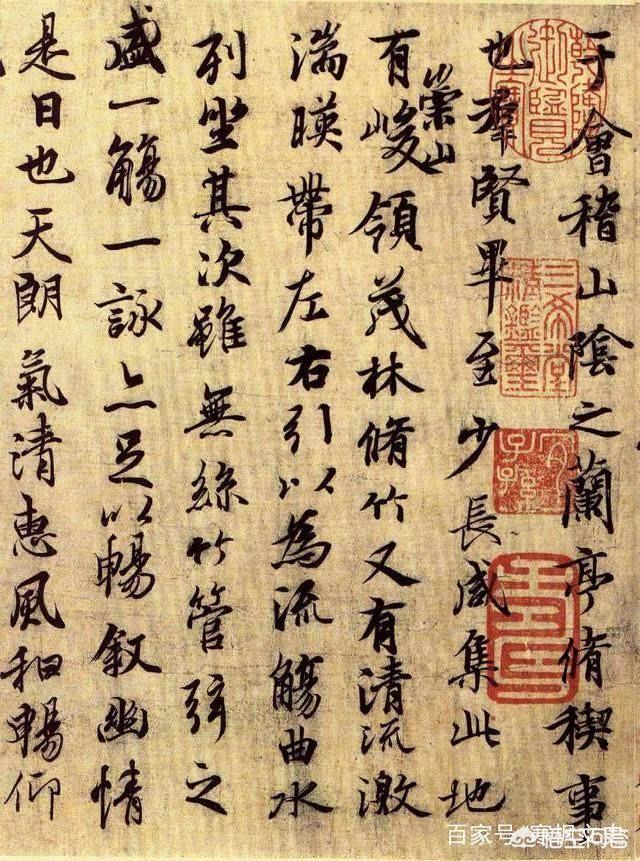 于會稽山陰之蘭亭脩稧事
也羣賢畢至少長咸集此地
有崇山峻領茂林脩竹又有清流激
湍暎帶左右引以為流觴曲水
列坐其次雖無絲竹管弦之
盛一觴一詠亦足以暢叙幽情
是日也天朗氣清惠風和暢仰
三希堂精鑑璽
宜子孫
百家号
悟空问答